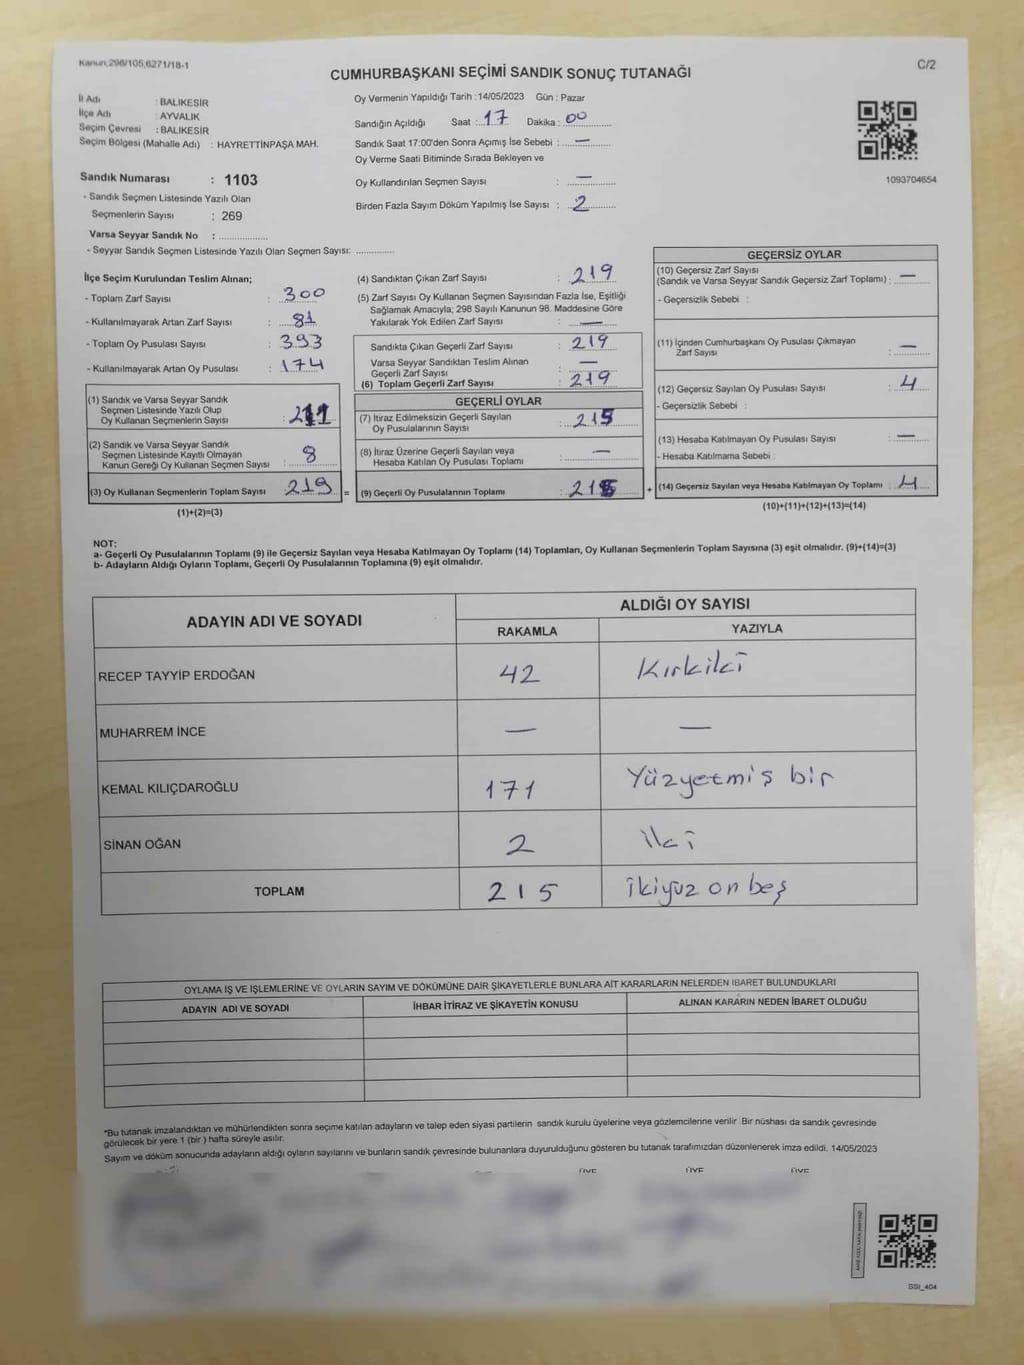 Kanun,298/105,6271/18-1
C/2
CUMHURBAŞKANI SEÇİMİ SANDIK SONUÇ TUTANAĞI
İl Adı : BALIKESİR
İlçe Adı : AYVALIK
Seçim Çevresi : BALIKESİR
Seçim Bölgesi (Mahalle Adı) : HAYRETTİNPAŞA MAH.
Oy Vermenin Yapıldığı Tarih :14/05/2023 Gün : Pazar
Sandığın Açıldığı Saat : 17 Dakika : 00
Sandık Saat 17:00'den Sonra Açımış İse Sebebi : —
Oy Verme Saati Bitiminde Sırada Bekleyen ve
Oy Kullandırılan Seçmen Sayısı : —
Birden Fazla Sayım Döküm Yapılmış İse Sayısı : 2
1093704654
Sandık Numarası : 1103
- Sandık Seçmen Listesinde Yazılı Olan
Seçmenlerin Sayısı : 269
Varsa Seyyar Sandık No : ..................
- Seyyar Sandık Seçmen Listesinde Yazılı Olan Seçmen Sayısı: ..............
İlçe Seçim Kurulundan Teslim Alınan;
- Toplam Zarf Sayısı : 300
- Kullanılmayarak Artan Zarf Sayısı : 81
- Toplam Oy Pusulası Sayısı : 393
- Kullanılmayarak Artan Oy Pusulası : 174
(1) Sandık ve Varsa Seyyar Sandık
Seçmen Listesinde Yazılı Olup
Oy Kullanan Seçmenlerin Sayısı : 211
(2) Sandık ve Varsa Seyyar Sandık
Seçmen Listesinde Kayıtlı Olmayan
Kanun Gereği Oy Kullanan Seçmen Sayısı : 8
(3) Oy Kullanan Seçmenlerin Toplam Sayısı : 219 =
(1)+(2)=(3)
(4) Sandıktan Çıkan Zarf Sayısı : 219
(5) Zarf Sayısı Oy Kullanan Seçmen Sayısından Fazla İse, Eşitliği
Sağlamak Amacıyla; 298 Sayılı Kanunun 98. Maddesine Göre
Yakılarak Yok Edilen Zarf Sayısı : —
Sandıkta Çıkan Geçerli Zarf Sayısı : 219
Varsa Seyyar Sandıktan Teslim Alınan
Geçerli Zarf Sayısı : —
(6) Toplam Geçerli Zarf Sayısı : 219
GEÇERLİ OYLAR
(7) İtiraz Edilmeksizin Geçerli Sayılan
Oy Pusulalarının Sayısı : 215
(8) İtiraz Üzerine Geçerli Sayılan veya
Hesaba Katılan Oy Pusulası Toplamı : —
(9) Geçerli Oy Pusulalarının Toplamı : 215 +
GEÇERSİZ OYLAR
(10) Geçersiz Zarf Sayısı
(Sandık ve Varsa Seyyar Sandık Geçersiz Zarf Toplamı) : —
- Geçersizlik Sebebi :
(11) İçinden Cumhurbaşkanı Oy Pusulası Çıkmayan
Zarf Sayısı : —
(12) Geçersiz Sayılan Oy Pusulası Sayısı : 4
- Geçersizlik Sebebi :
(13) Hesaba Katılmayan Oy Pusulası Sayısı : —
- Hesaba Katılmama Sebebi :
(14) Geçersiz Sayılan veya Hesaba Katılmayan Oy Toplamı : 4
(10)+(11)+(12)+(13)=(14)
NOT:
a- Geçerli Oy Pusulalarının Toplamı (9) ile Geçersiz Sayılan veya Hesaba Katılmayan Oy Toplamı (14) Toplamları, Oy Kullanan Seçmenlerin Toplam Sayısına (3) eşit olmalıdır. (9)+(14)=(3)
b- Adayların Aldığı Oyların Toplamı, Geçerli Oy Pusulalarının Toplamına (9) eşit olmalıdır.
ADAYIN ADI VE SOYADI
ALDIĞI OY SAYISI
RAKAMLA YAZIYLA
RECEP TAYYİP ERDOĞAN 42 Kırkiki
MUHARREM İNCE — —
KEMAL KILIÇDAROĞLU 171 Yüzyetmiş bir
SİNAN OĞAN 2 iki
TOPLAM 215 ikiyüz on beş
OYLAMA İŞ VE İŞLEMLERİNE VE OYLARIN SAYIM VE DÖKÜMÜNE DAİR ŞİKAYETLERLE BUNLARA AİT KARARLARIN NELERDEN İBARET BULUNDUKLARI
ADAYIN ADI VE SOYADI İHBAR İTİRAZ VE ŞİKAYETİN KONUSU ALINAN KARARIN NEDEN İBARET OLDUĞU
*Bu tutanak imzalandıktan ve mühürlendikten sonra seçime katılan adayların ve talep eden siyasi partilerin sandık kurulu üyelerine veya gözlemcilerine verilir .Bir nüshası da sandık çevresinde
görülecek bir yere 1 (bir ) hafta süreyle asılır.
Sayım ve döküm sonucunda adayların aldığı oyların sayılarını ve bunların sandık çevresinde bulunanlara duyurulduğunu gösteren bu tutanak tarafımızdan düzenlenerek imza edildi. 14/05/2023
ÜYE ÜYE ÜYE
SSI_404